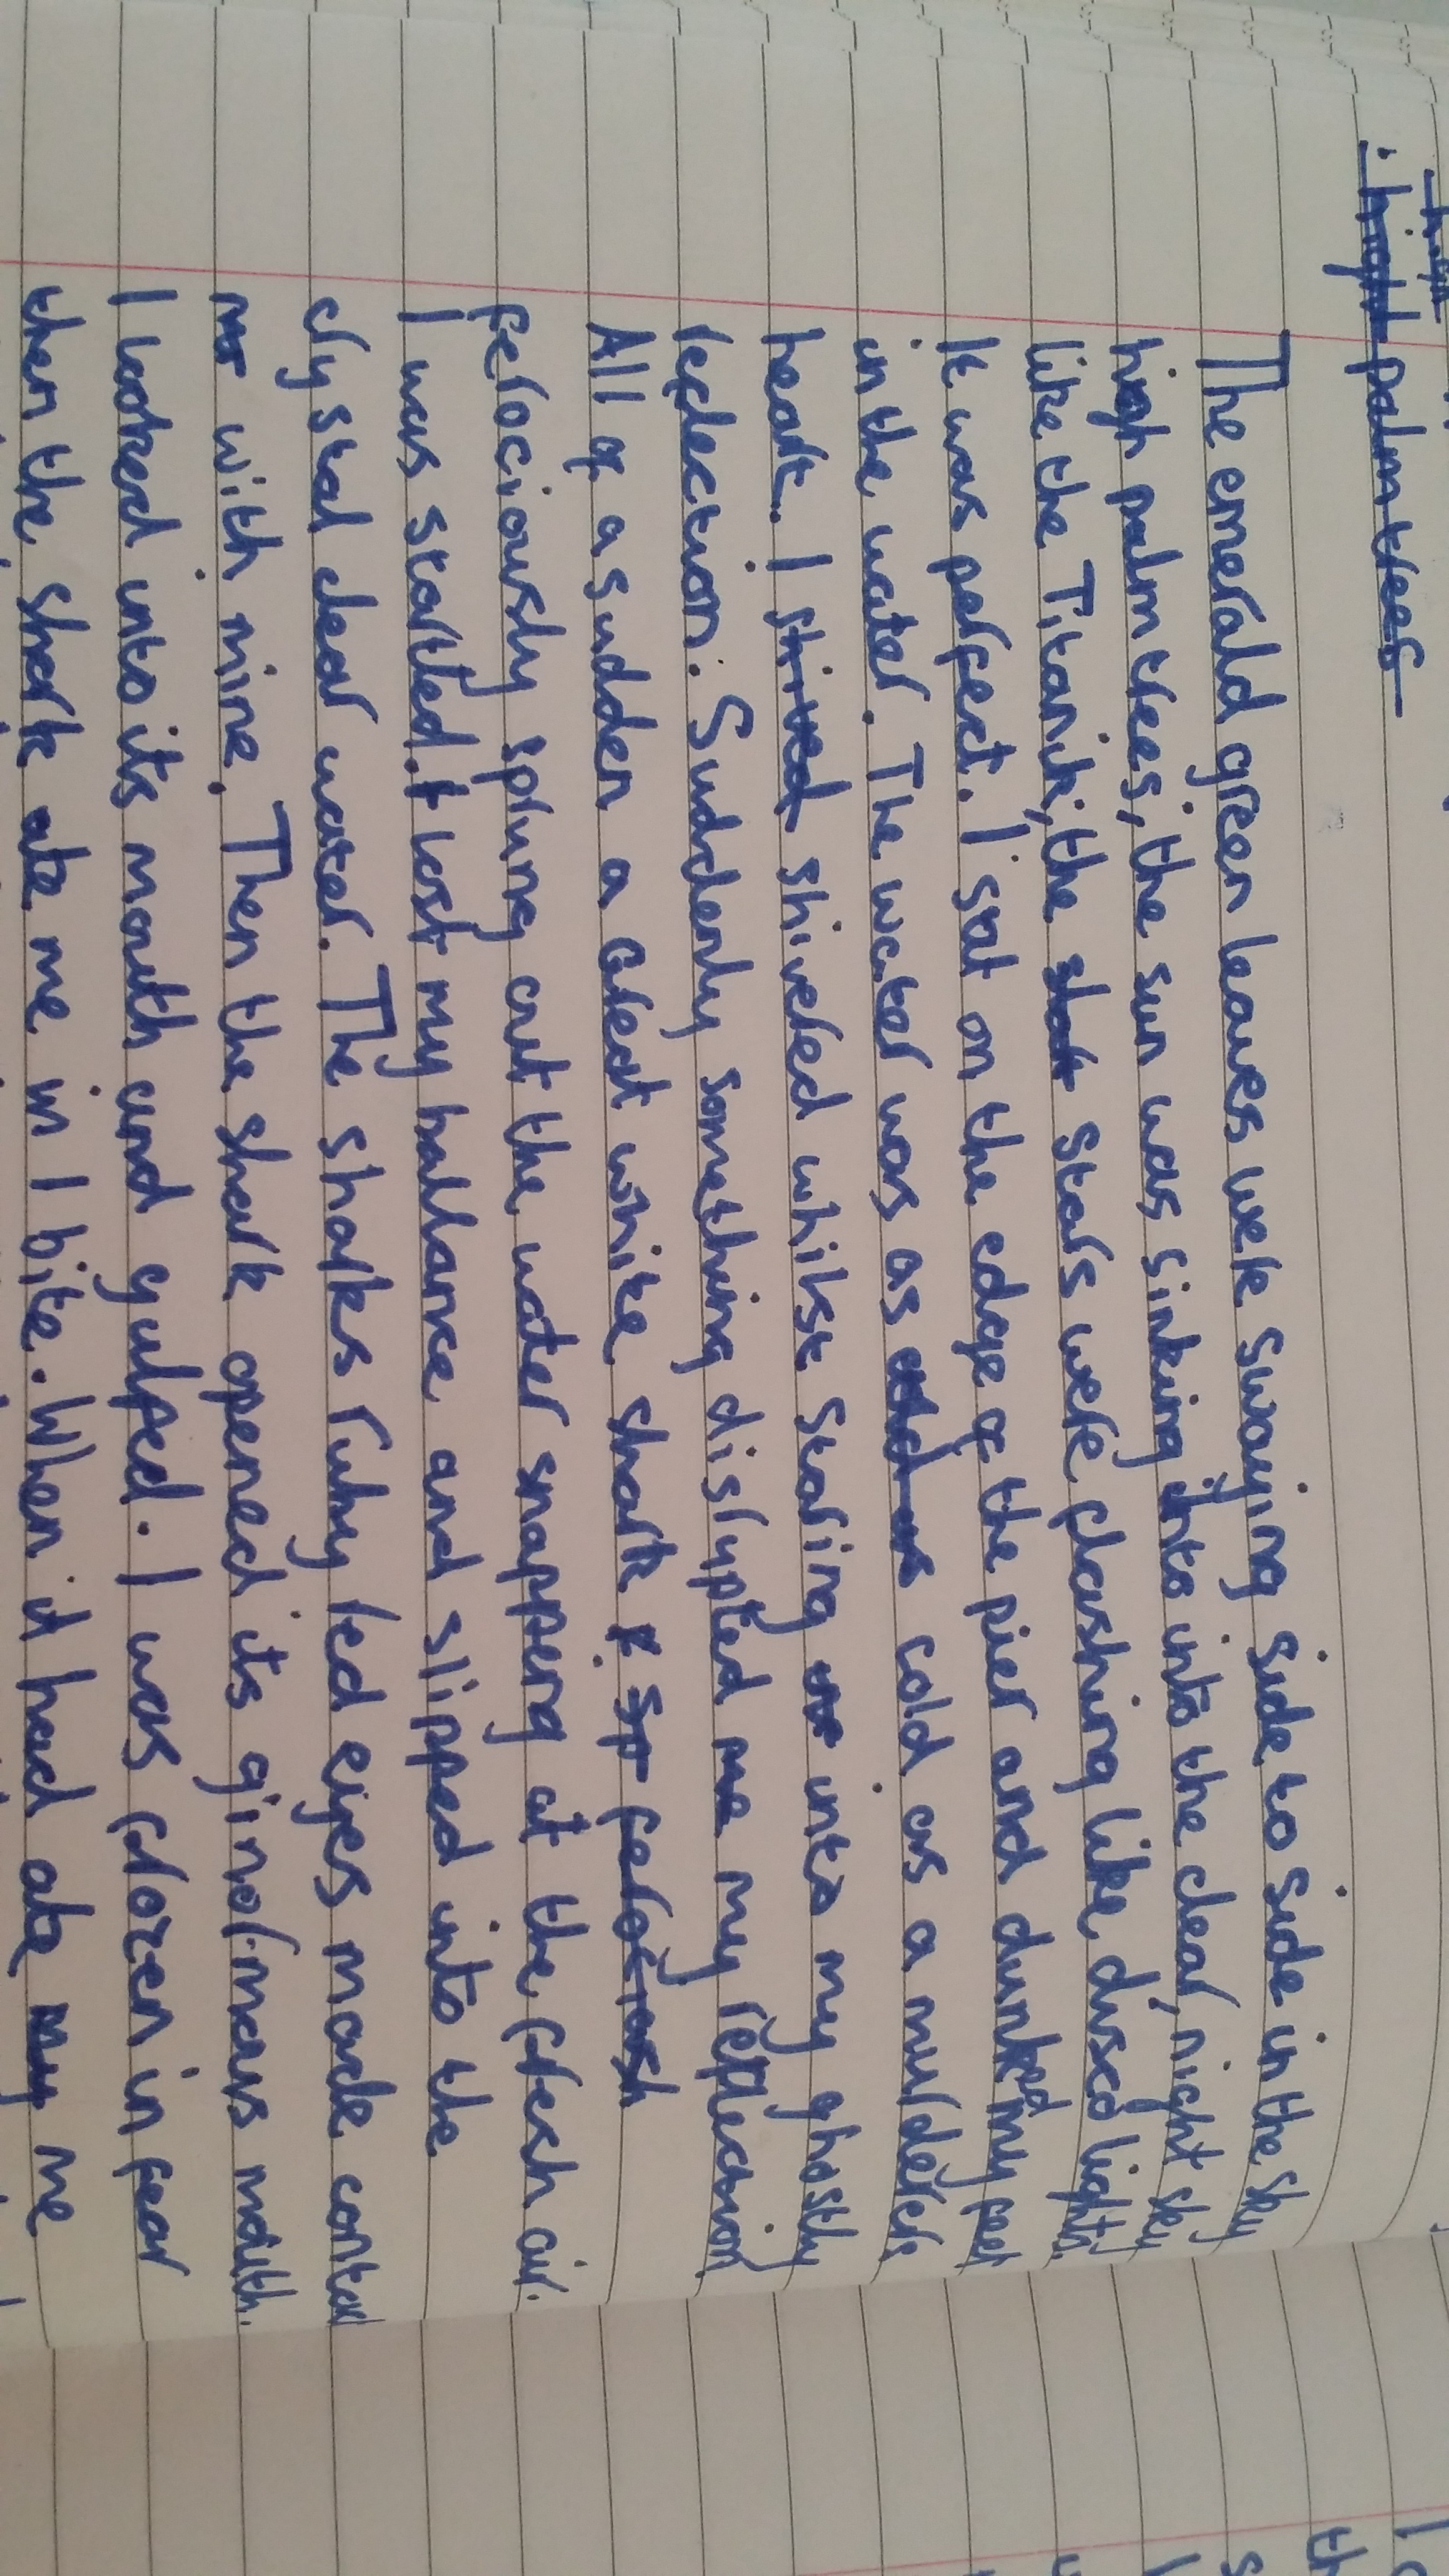 high palm trees
The emerald green leaves were swaying side to side in the sky
high palm trees; the sun was sinking into into the clear, night sky
like the Titanic; the stars were flashing like disco lights.
It was perfect. I sat on the edge of the pier and dunked my feet
in the water. The water was as cold as a murderers
heart. I shivered whilst staring into my ghostly
reflection. Suddenly something disrupted my reflection
All of a sudden a great white shark ferociosh
ferociously sprung out the water snapping at the fresh air.
I was startled. I lost my ballance and slipped into the
crystal clear water. The sharks ruby red eyes made contact
with mine. Then the shark opened its ginormous mouth.
I looked into its mouth and gulped. I was frozen in fear
then the shark ate me in 1 bite. When it had ate me